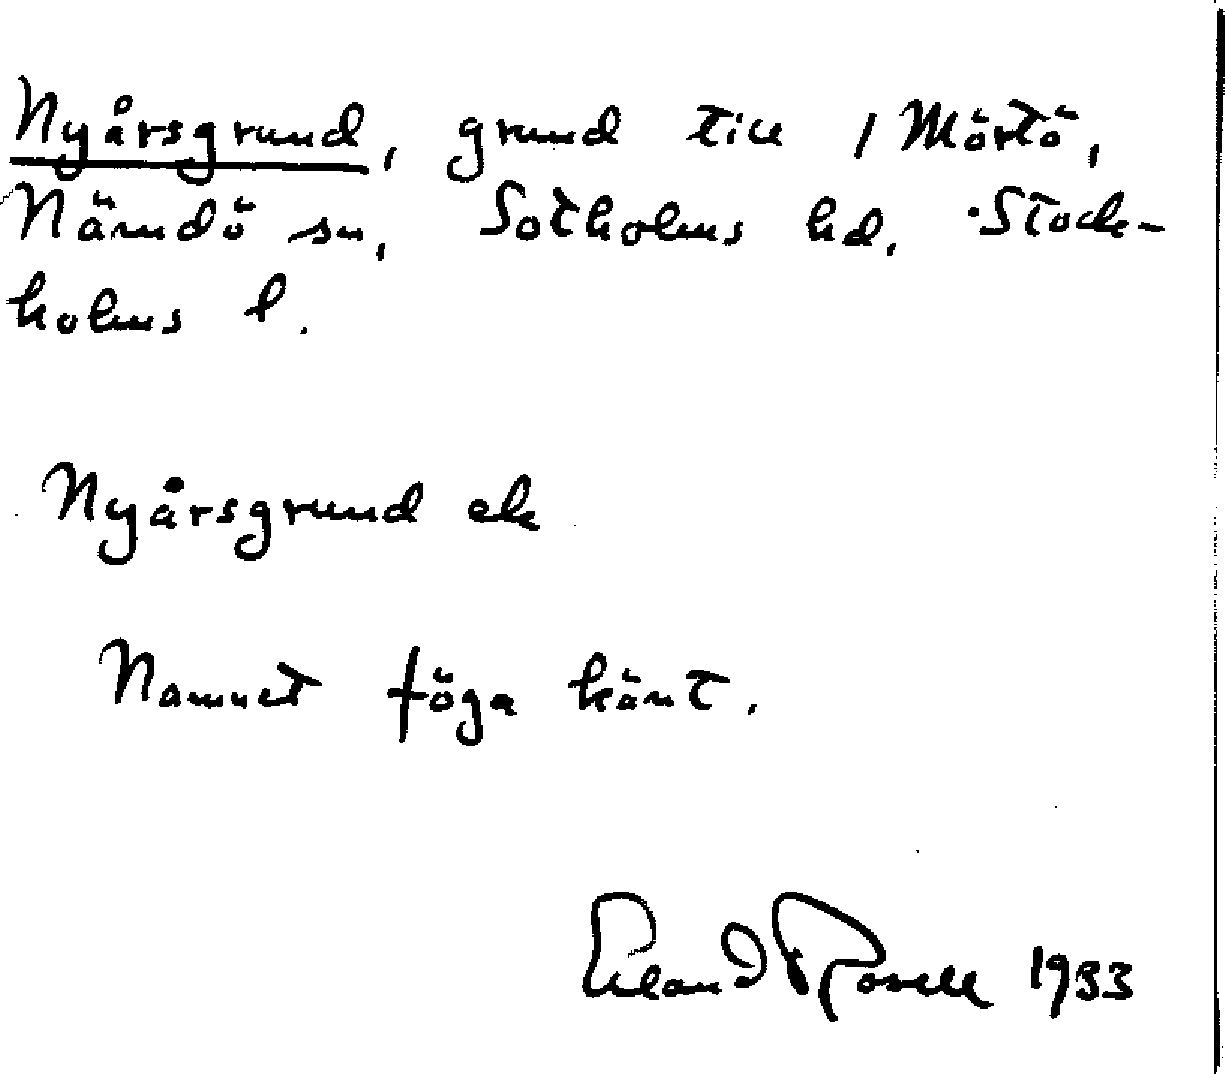 Nyårsgrund, grund till 1 Mörtö,
Nämdö sn, Sotholms hd. Stock-
holms l.
Nyårsgrund ek
Namnet föga känt.
Erland Rosell 1933